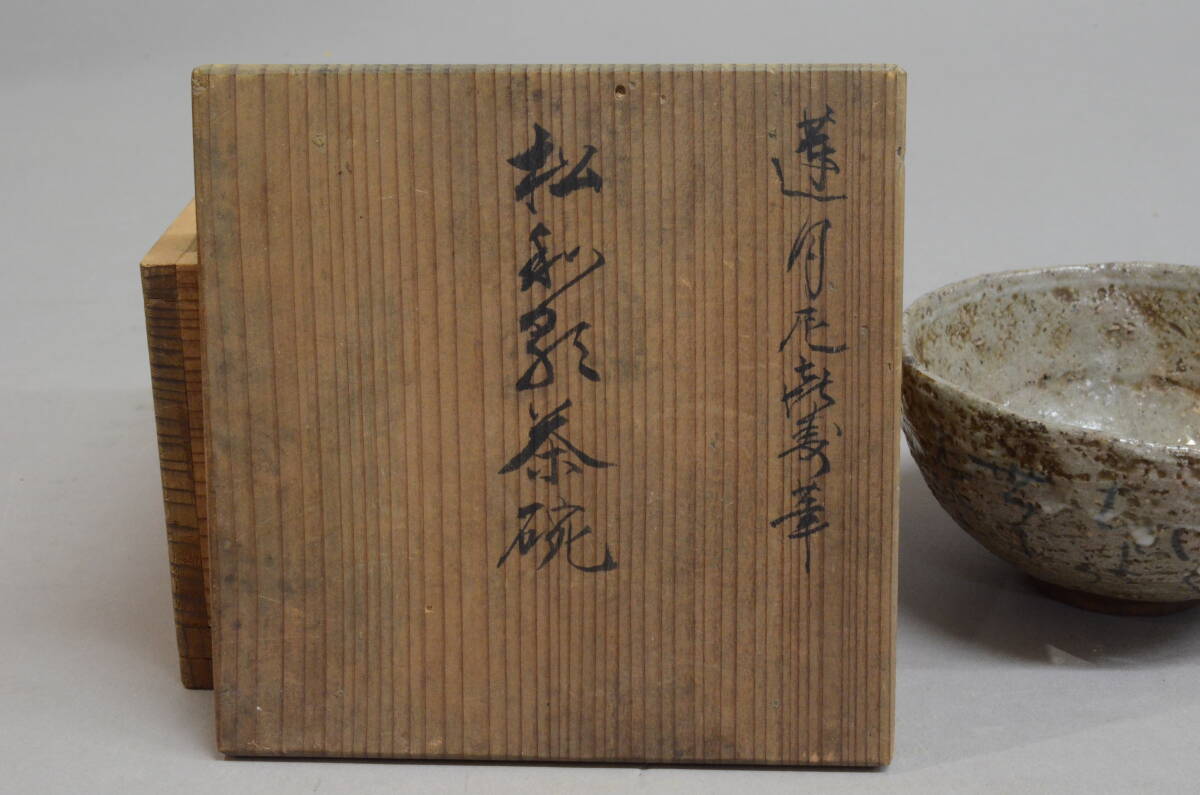 蓮月尼喜寿筆
松和歌茶碗